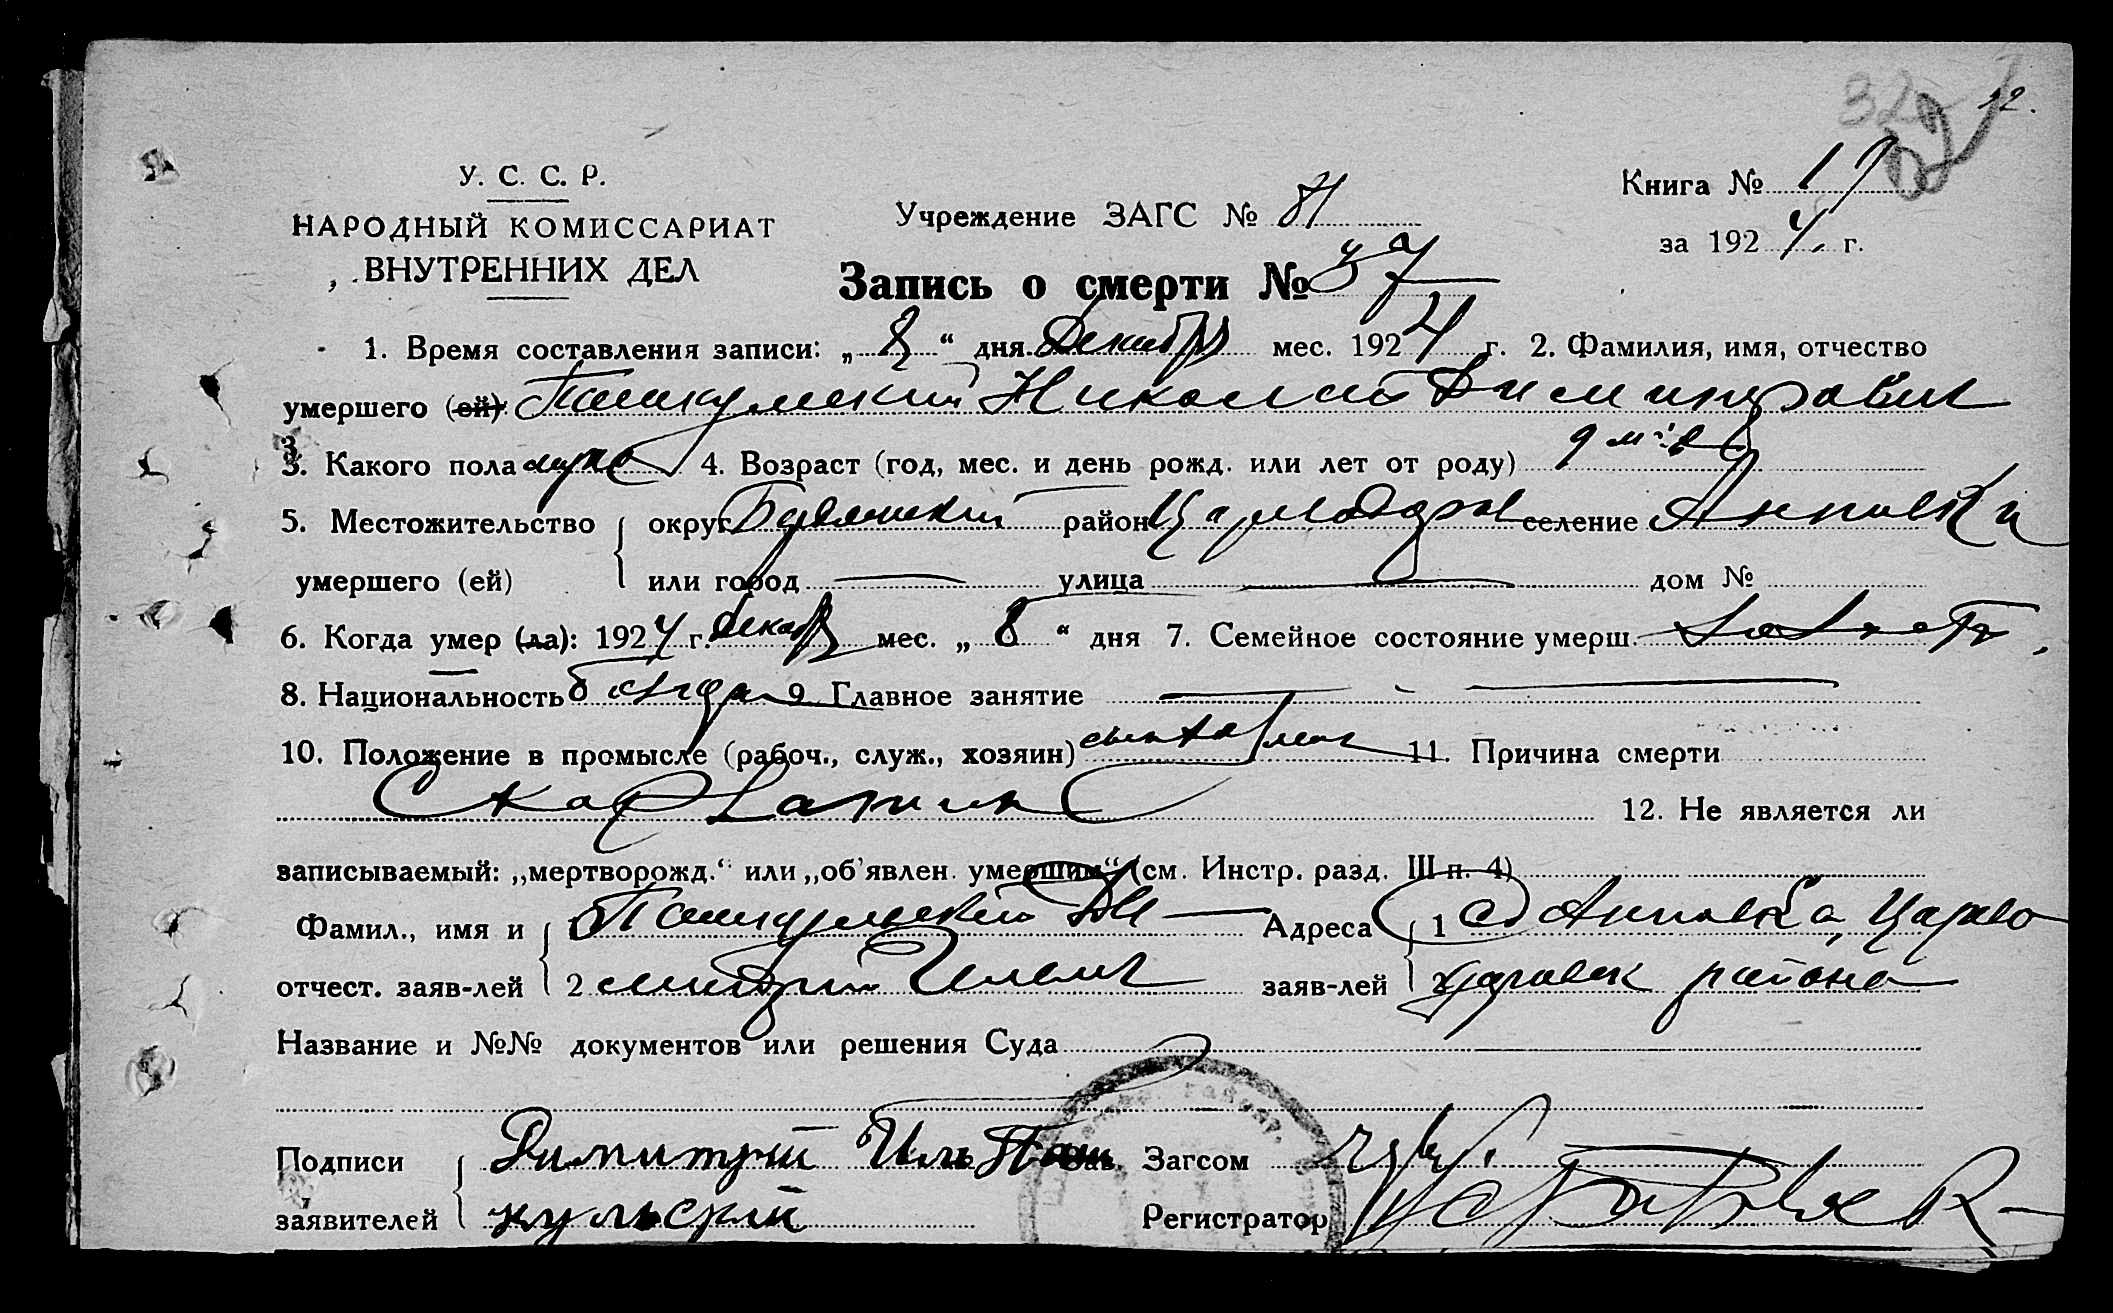 У. С. С. Р.
НАРОДНЫЙ КОМИССАРИАТ
ВНУТРЕННИХ ДЕЛ
Учреждение ЗАГС №
Книга № 17
за 1924 г.
Запись о смерти № 37
1. Время составления записи: „8“ дня Декабря мес. 1924 г. 2. Фамилия, имя, отчество
умершего (ей) Пашкульский Николай Димитрович
3. Какого пола муж 4. Возраст (год, мес. и день рожд. или лет от роду) 9 м-в
5. Местожительство округ район селение Анновка
умершего (ей) или город — улица — дом №
6. Когда умер (ла): 1924 г. Декабр мес. „8“ дня 7. Семейное состояние умерш. холост.
8. Национальность болгар 9. Главное занятие —
10. Положение в промысле (рабоч., служ., хозяин) 11. Причина смерти
Скарлатина 12. Не является ли
записываемый: „мертворожд.“ или „об'явлен. умершим“ (см. Инстр. разд. III п. 4)
Фамил., имя и 1 Пашкульский Ди— Адреса 1 с Анновка, Царево
отчест. заяв-лей 2 митрий Ильич заяв-лей района
Название и №№ документов или решения Суда
Подписи Димитрий Иль Паш Зав. Загсом
заявителей кульский Регистратор